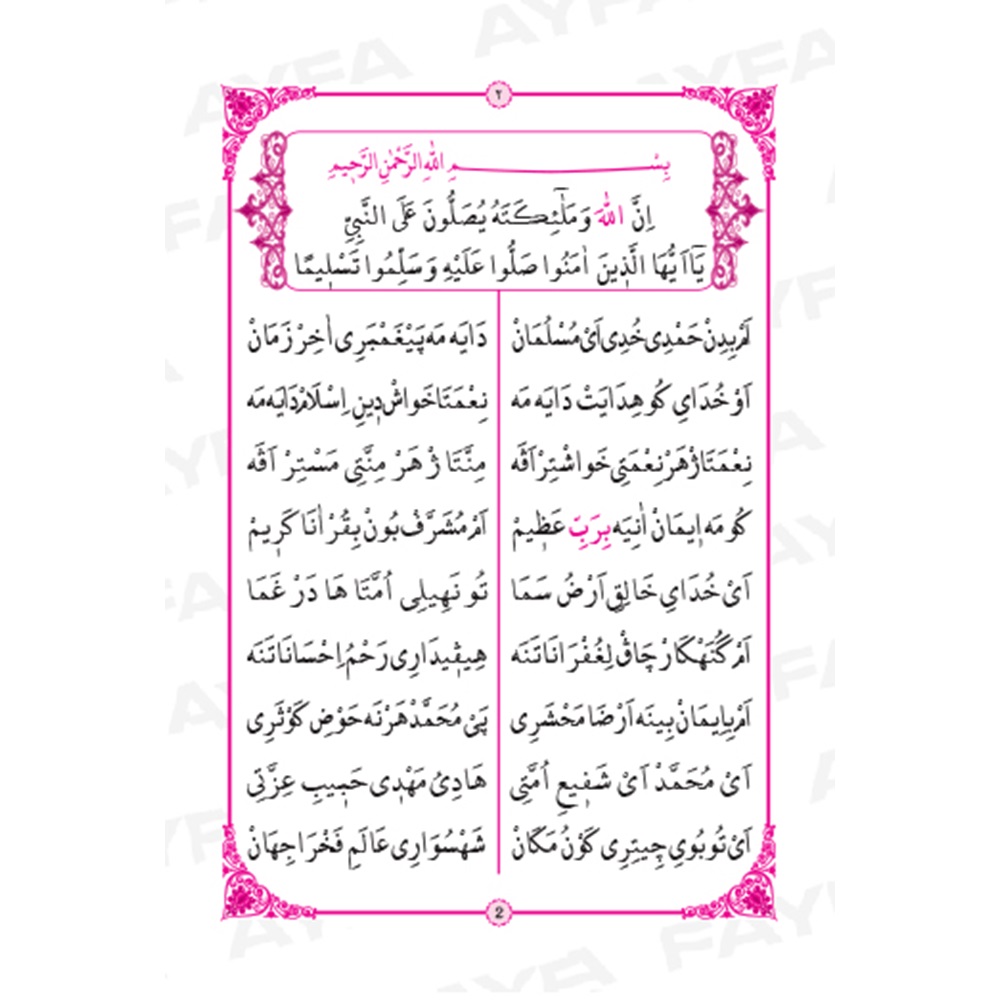 ٢
بِسْمِ اللهِ الرَّحْمٰنِ الرَّحِيمِ
اِنَّ اللهَ وَ مَلٰٓئِكَتَهُ يُصَلُّونَ عَلَى النَّبِيِّ
يَٓا اَيُّهَا الَّذِينَ اٰمَنُوا صَلُّوا عَلَيْهِ وَ سَلِّمُوا تَسْلِيمًا
اَمْ بِدِنْ حَمْدِى خُدِى اَىْ مُسْلُمَانْ دَايَه مَه پَيْغَمْبَرِى اٰخِرْ زَمَانْ
اَوْ خُدَايِ كُو هِدَايَتْ دَايَه مَه نِعْمَتَا خَواشْ دِينِ اِسْلَامْ دَايَه مَه
نِعْمَتَا ژْ هَرْ نِعْمَتِى خَواشْتِرْ اَڤَه مِنَّتَا ژْ هَرْ مِنَّتِى مَسْتِرْ اَڤَه
كُو مَه اِيمَانْ اٰنِيَه بِرَبِّ عَظِيمْ اَمْ مُشَرَّفْ بُونْ بِقُرْاٰنَا كَرِيمْ
اَىْ خُدَايِ خَالِقِ اَرْضُ سَمَا تُو نَهِيلِى اُمَّتَا هَا دَرْ غَمَا
اَمْ گُنَهْكَارْ چَاڤْ لِغُفْرَانَا تَنَه هِيڤِيدَارِى رَحْمُ اِحْسَانَا تَنَه
اَمْ بِاِيمَانْ بِينَه اَرْضَا مَحْشَرِى پَىْ مُحَمَّدْ هَرْنَه حَوْضِ كَوْثَرِى
اَىْ مُحَمَّدْ اَىْ شَفِيعِ اُمَّتِى هَادِىُ مَهْدِى حَبِيبِ عِزَّتِى
اَىْ تُو بُوىِ چِيتِرِى كَوْنُ مَكَانْ شَهْسُوَارِى عَالَمِ فَخْرَا جِهَانْ
2